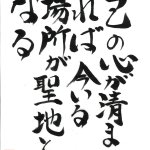 己の心が清ま
れば今いる
場所が聖地と
なる